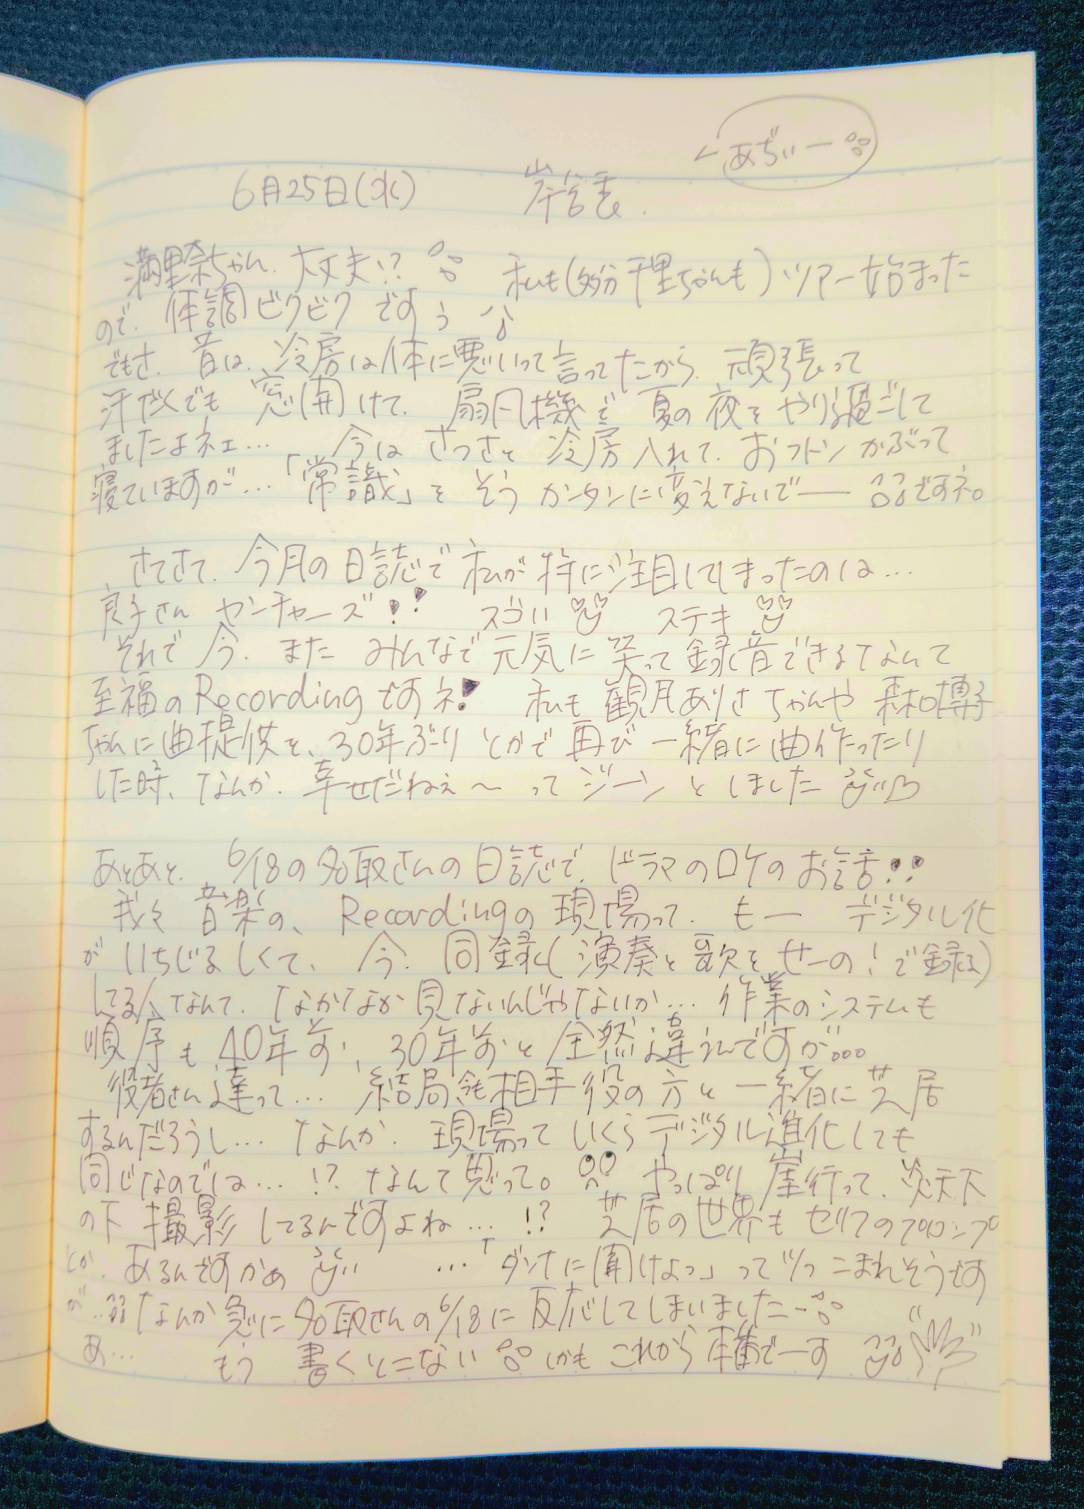 あぢぃー
6月25日(水) 岸谷香.
満里奈ちゃん、大丈夫!? 私も(多分千里ちゃんも)ツアー始まった
ので、体調ビクビクですぅ
でもさ、昔は、冷房は体に悪いって言ってたから、頑張って
汗だくでも窓開けて、扇風機で夏の夜をやり過ごして
ましたよネェ… 今はさっさと冷房入れて、おフトンかぶって
寝ていますが…「常識」をそうカンタンに変えないでー ですネ。
さてさて、今月の日誌で私が特に注目してしまったのは…
良子さん ベンチャーズ!! スゴい ステキ
それで今、またみんなで元気に笑って録音できるなんて
至福のRecordingですネ! 私も観月ありさちゃんや森口博子
ちゃんに曲提供を、30年ぶりとかで再び一緒に曲作ったり
した時、なんか、幸せだねぇ〜ってジーンとしました
あとあと、6/18の名取さんの日誌で、ドラマのロケのお話!!
我々音楽の、Recordingの現場って、もー デジタル化
がいちじるしくて、今、同録(演奏と歌をせーの!で録る)
してる人なんて、なかなか見ないんじゃないか… 作業のシステムも
順序も40年前、30年前と全然違うんですが…
役者さん達って… 結局相手役の方と一緒に芝居
するんだろうし… なんか、現場っていくらデジタル進化しても
同じなのでは…!? なんて思って。 やっぱり崖行って、炎天下
の下撮影してるんですよね…!? 芝居の世界もセリフのプロンプ
とか、あるんですかぁ …「ダンナに聞けよっ」ってツっこまれそうです
が… なんか急に名取さんの6/18に反応してしまいました
あ… もう書くとこない しかもこれから本番でーす